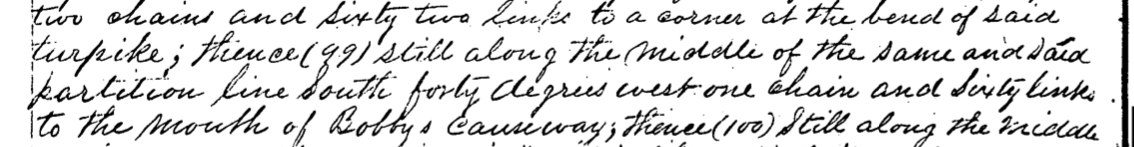 two chains and sixty two links to a corner at the bend of said
turpike; thence (99) still along the middle of the same and said
partition line South forty degrees west one chain and sixty links
to the mouth of Bobbys Causeway; thence (100) Still along the middle